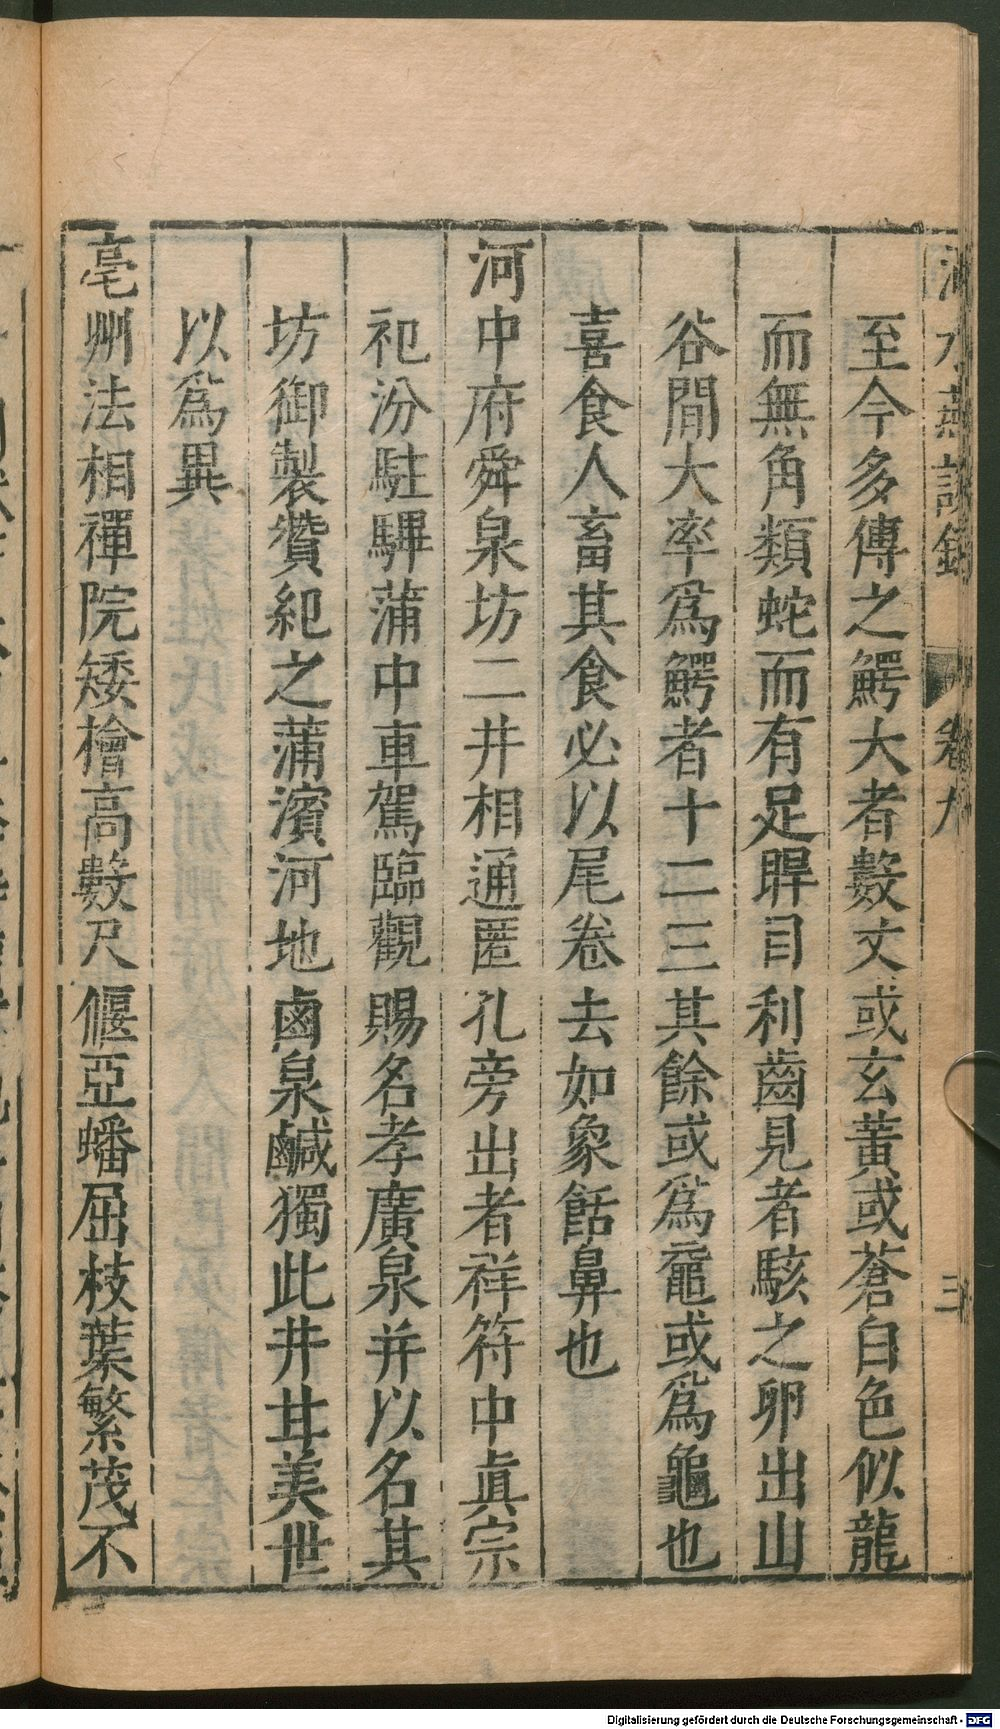 水燕談錄 卷九 三
至今多傳之鰐大者數丈或玄黃或蒼白色似龍
而無角類蛇而有足睅目利齒見者駭之卵出山
谷間大率爲鰐者十二三其餘或爲黿或爲龜也
喜食人畜其食必以尾卷去如象餂鼻也
河中府舜泉坊二井相通匿孔旁出者祥符中眞宗
祀汾駐驆蒲中車駕臨觀賜名孝廣泉并以名其
坊御製贊紀之蒲濱河地鹵泉鹹獨此井甘美世
以爲異
亳州法相禪院矮檜高數尺偃亞蟠屈枝葉繁茂不
Digitalisierung gefördert durch die Deutsche Forschungsgemeinschaft - DFG